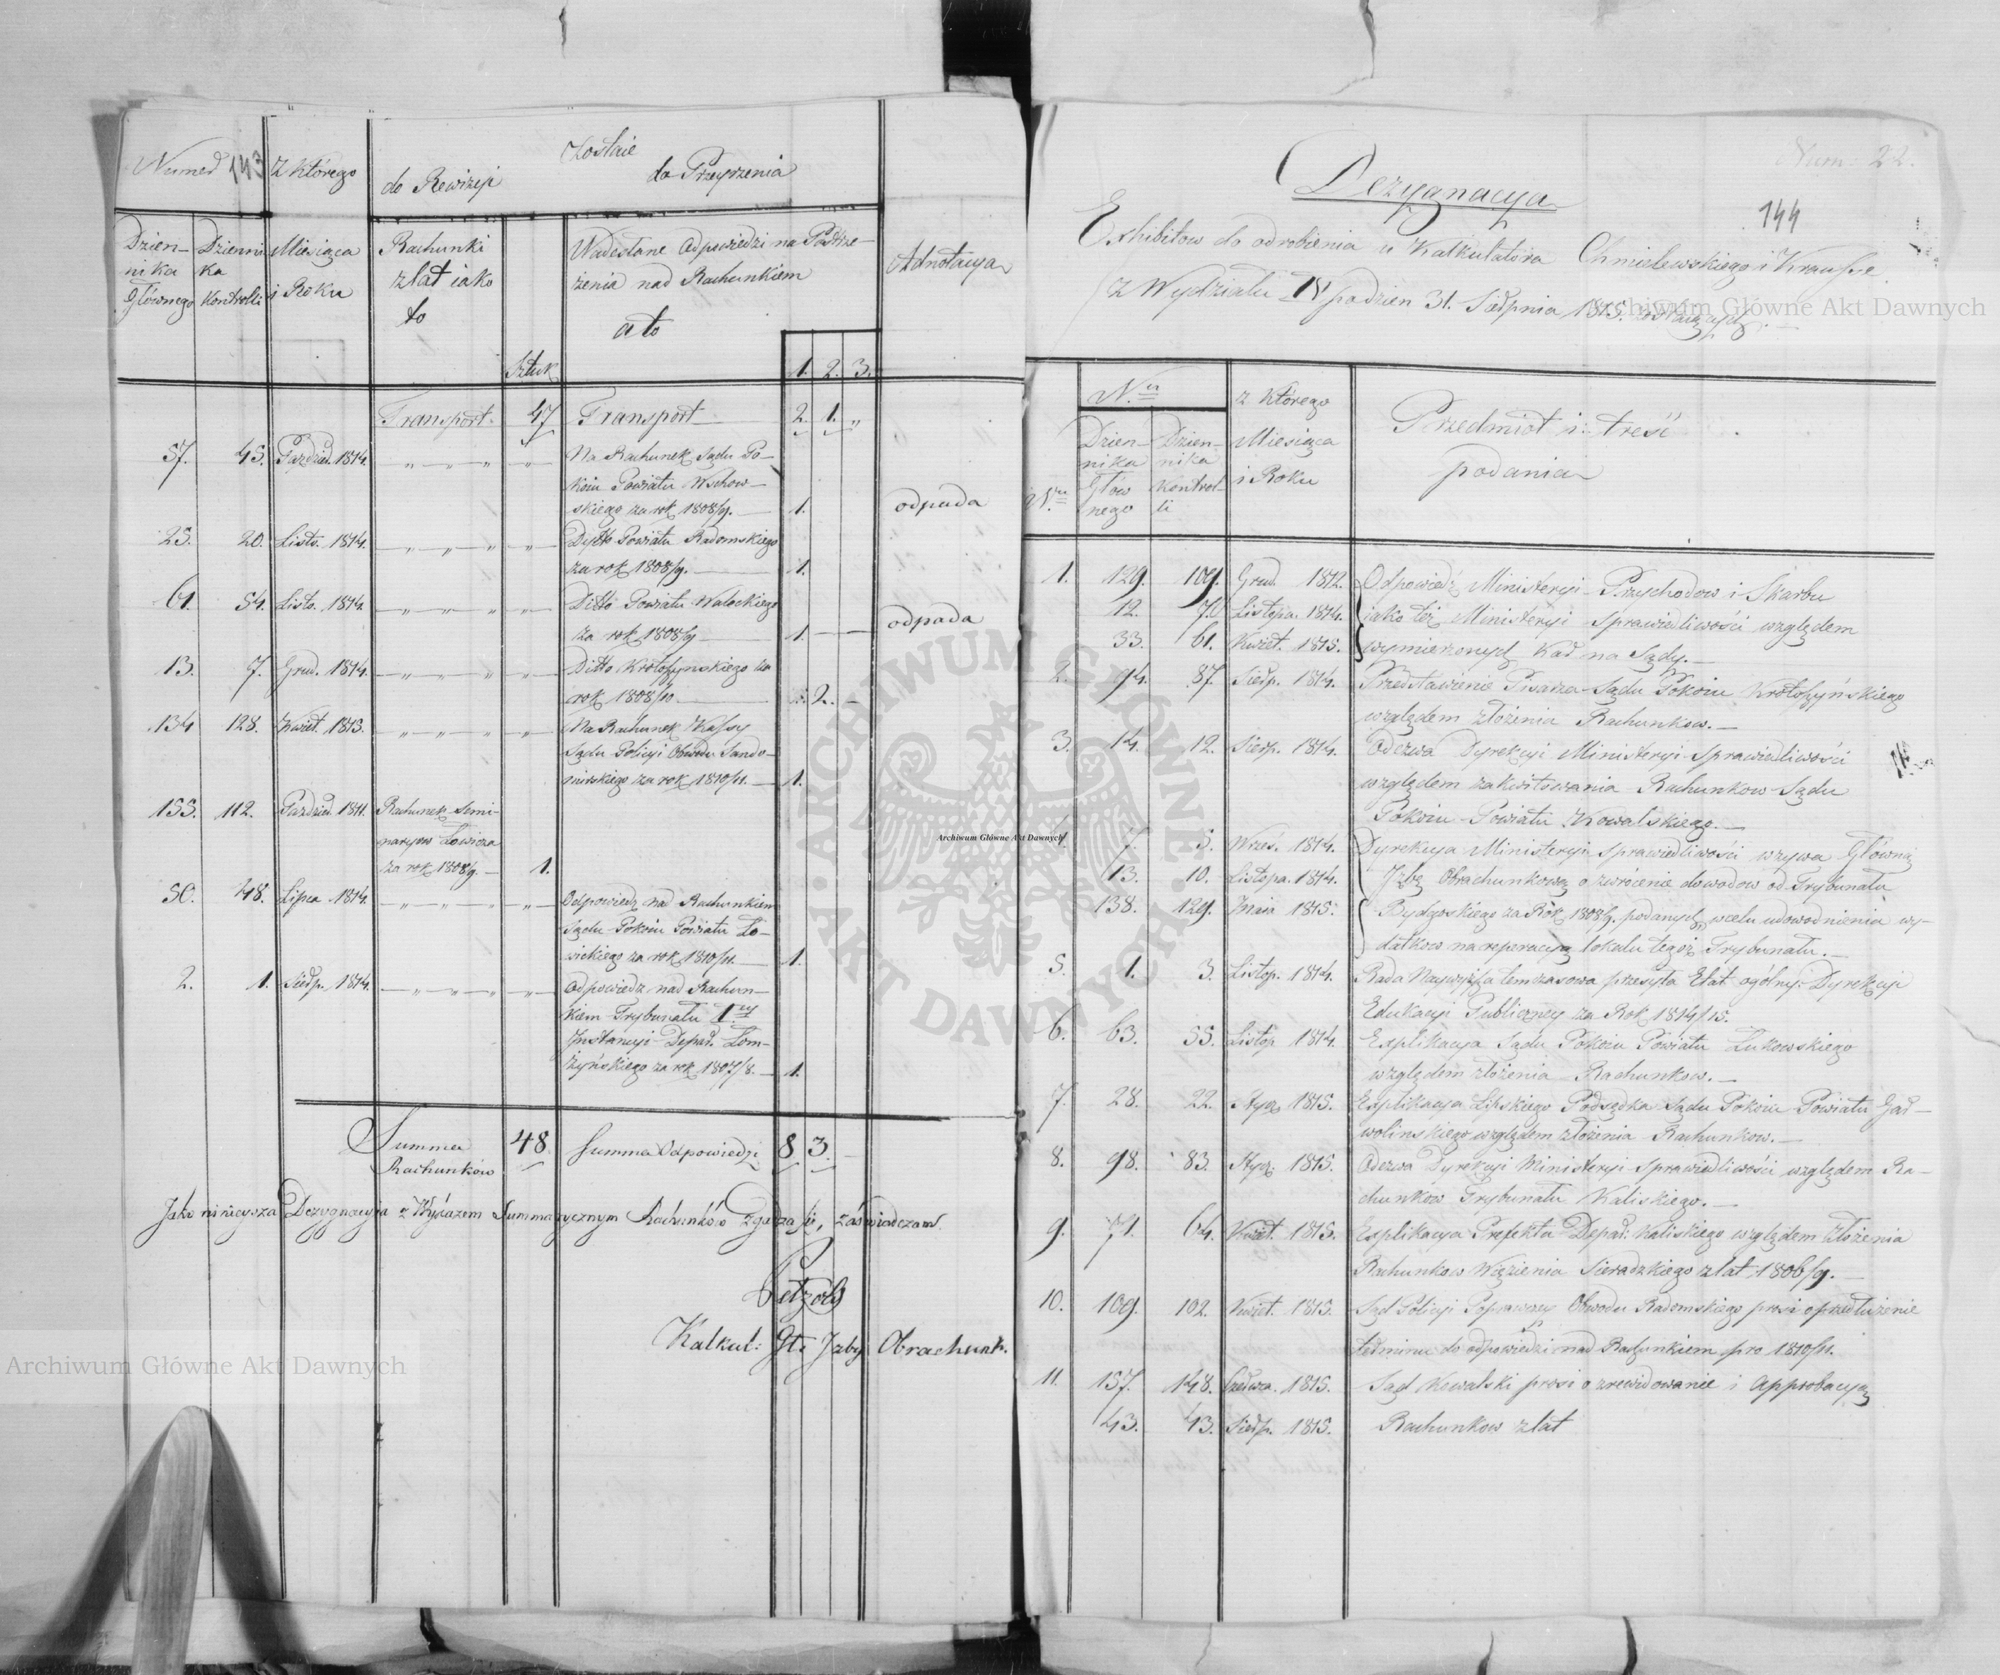 Numer 143 z którego
Zostaie
do Rewizyi
do Przeyrzenia
Dzien-
nika
Głównego
Dzienni
ka
Kontrolli
Miesiąca
i Roku
Rachunki
z lat iako
to
Sztuk
Nadesłane Odpowiedzi na Postrze-
żenia nad Rachunkiem
a to
1. 2. 3.
Adnotacya
Transport. 47 Transport 2. 1. „
57. 45. Paździer. 1814. „ „ „ „ Na Rachunek Sądu Po-
koiu Powiatu Wschow-
skiego za rok 1808/9. 1. odpada
23. 20. Listo. 1814. „ „ „ „ Ditto Powiatu Radomskiego
za rok 1808/9. 1.
61. 54. Listo. 1814. „ „ „ „ Ditto Powiatu Waleckiego
za rok 1808/9 1. odpada
13. 7. Grud. 1814. „ „ „ „ Ditto Krotoszynskiego za
rok 1808/10 2.
134 128. Kwiet. 1813. „ „ „ „ Na Rachunek Kassy
Sądu Policyi Obwodu Sando-
mirskiego za rok 1810/11. 1.
153. 112. Paździer. 1811. Rachunek Semi-
naryow Łowicza
za rok 1808/9. 1.
50. 48. Lipca 1814. „ „ „ „ Odpowiedz nad Rachunkiem
Sądu Pokoiu Powiatu Ło-
wickiego za rok 1810/11. 1.
2. 1. Sierp. 1814. „ „ „ „ Odpowiedz nad Rachun-
kiem Trybunału 1ey
Instancyi Depar. Łom-
żyńskiego za rok 1807/8. 1.
Summa 48 Summa Odpowiedzi 8 3.
Rachunków
Jako ninieysza Dezygnacyia z Wykazem Summarycznym Rachunków zgadza się, zaświadczam.
Petzold
Kalkul: Gł: Izby Obrachunk.
Num: 22.
144
Dezygnacya
Exhibitow do odrobienia u Kalkulatora Chmielewskiego i Krausse
z Wydziału IV podzien 31. Sierpnia 1815. zostaiących.
Nra
Nru
Dzien-
nika
Głow
nego
Dzien-
nika
Kontrol-
li
z którego
Miesiąca
i Roku
Przedmiot i treść
podania
1. 129. 109. Grud. 1812. Odpowiedź Ministeryi Przychodow i Skarbu
12. 70 Listopa. 1814. iako też Ministeryi Sprawiedliwości względem
33. 61. Kwiet. 1815. wymierzonych Kar na Sądy.
2. 94. 87. Sierp. 1814. Przedstawienie Pisarza Sądu Pokoiu Krotoszyńskiego
względem złożenia Rachunkow.
3. 14. 12. Sierp. 1814. Odezwa Dyrekcyi Ministeryi Sprawiedliwości
względem zakwitowania Rachunkow Sądu
Pokoiu Powiatu Kowalskiego.
4. 7. 5. Wrześ. 1814. Dyrekcya Ministeryi Sprawiedliwości wzywa Główną
13. 10. Listopa. 1814. Izbę Obrachunkową o zwrócenie dowodow od Trybunału
138. 129. Maia 1815. Bydgoskiego za Rok 1808/9. podanych wcelu udowodnienia wy-
datkow na reperacyą lokalu tegoż Trybunału.
5. 1. 3. Listop. 1814. Rada Naywyższa temczasowa przesyła Etat ogólny Dyrekcyi
Edukacyi Publiczney za Rok 1814/15.
6. 63. 55. Listop. 1814. Explikacya Sądu Pokoiu Powiatu Łukowskiego
względem złożenia Rachunkow.
7. 28. 22. Stycz. 1815. Explikacya Lipskiego Podsędka Sądu Pokoiu Powiatu Gar-
wolinskiego względem złożenia Rachunkow.
8. 98. 83. Stycz. 1815. Odezwa Dyrekcyi Ministeryi Sprawiedliwości względem Ra-
chunkow Trybunału Kaliskiego.
9. 71. 64. Kwiet. 1815. Explikacya Prefekta Depar: Kaliskiego względem złożenia
Rachunkow Więzienia Sieradzkiego z lat 1806/9.
10. 109. 102. Kwiet. 1815. Sąd Policyi Poprawczey Obwodu Radomskiego prosi o przedłużenie
terminu do odpowiedzi nad Rachunkiem pro 1810/11.
11. 157. 148. Czerwca. 1815. Sąd Kowalski prosi o zrewidowanie i approbacyą
43. 43. Sierp. 1815. Rachunkow z lat
Archiwum Główne Akt Dawnych
Archiwum Główne Akt Dawnych
Archiwum Główne Akt Dawnych
ARCHIWUM GŁÓWNE AKT DAWNYCH